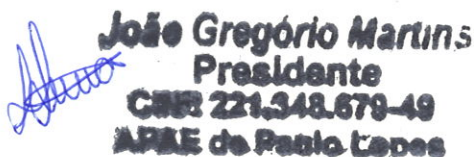 João Gregório Martins
Presidente
CPF: 221.348.679-49
APAE de Paulo Lopes